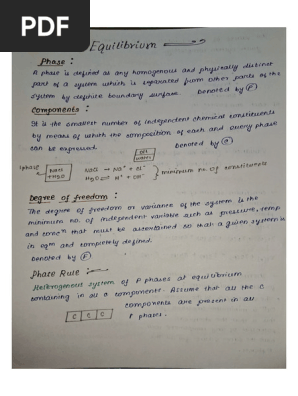 PDF
Equilibrium
Phase :
A phase is defined as any homogenous and physically distinct
part of a system which is separated from other parts of the
system by definite boundary surface. Denoted by (P)
Components :
It is the smallest number of independent chemical constituents
by means of which the composition of each and every phase
can be expressed. Denoted by (C)
oil
water
1 phase
NaCl
+ H2O
NaCl → Na+ + Cl-
H2O ⇌ H+ + OH-
minimum no. of constituents
Degree of freedom :
The degree of freedom or variance of the system is the
minimum no. of independent variable such as pressure, temp
and concn that must be ascertained so that a given system is
in eqm and completely defined.
Denoted by (F)
Phase Rule :
Heterogenous system of P phases at equilibrium
containing in all C components. Assume that all the C
components are present in all
P phases.
C C C